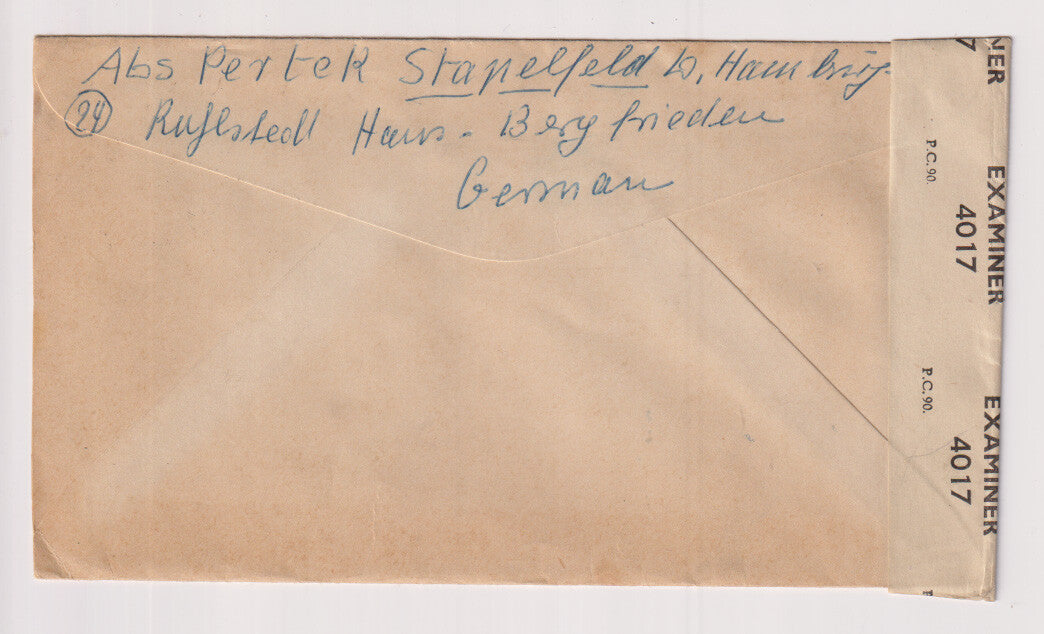 Abs Pertek Stapelfeld b, Hamburg
24 Haus - Bergfrieden
German
NER
7
P.C.90.
EXAMINER
4017
P.C.90.
EXAMINER
4017
P